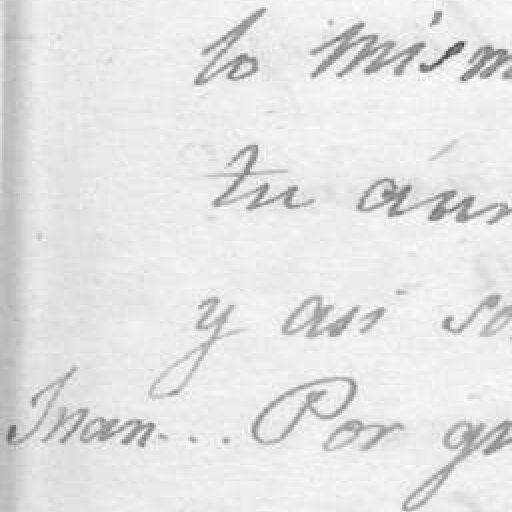 lo mism
tu aún
y asi so
Juan... Por gr